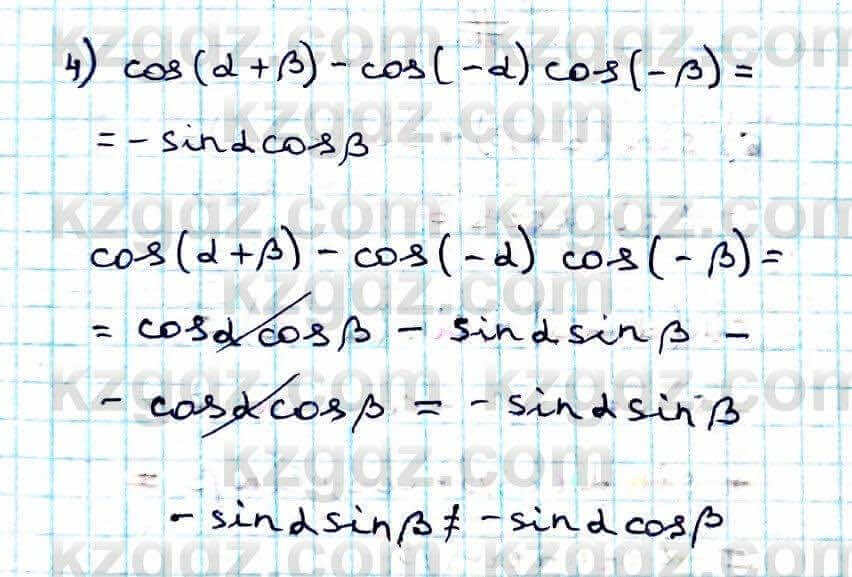 4) cos(α + β) - cos(-α) cos(-β) =
= - sinα cosβ
cos(α + β) - cos(-α) cos(-β) =
= cosα cosβ - sinα sinβ -
- cosα cosβ = - sinα sinβ
- sinα sinβ ≠ - sinα cosβ
kzgdz.com